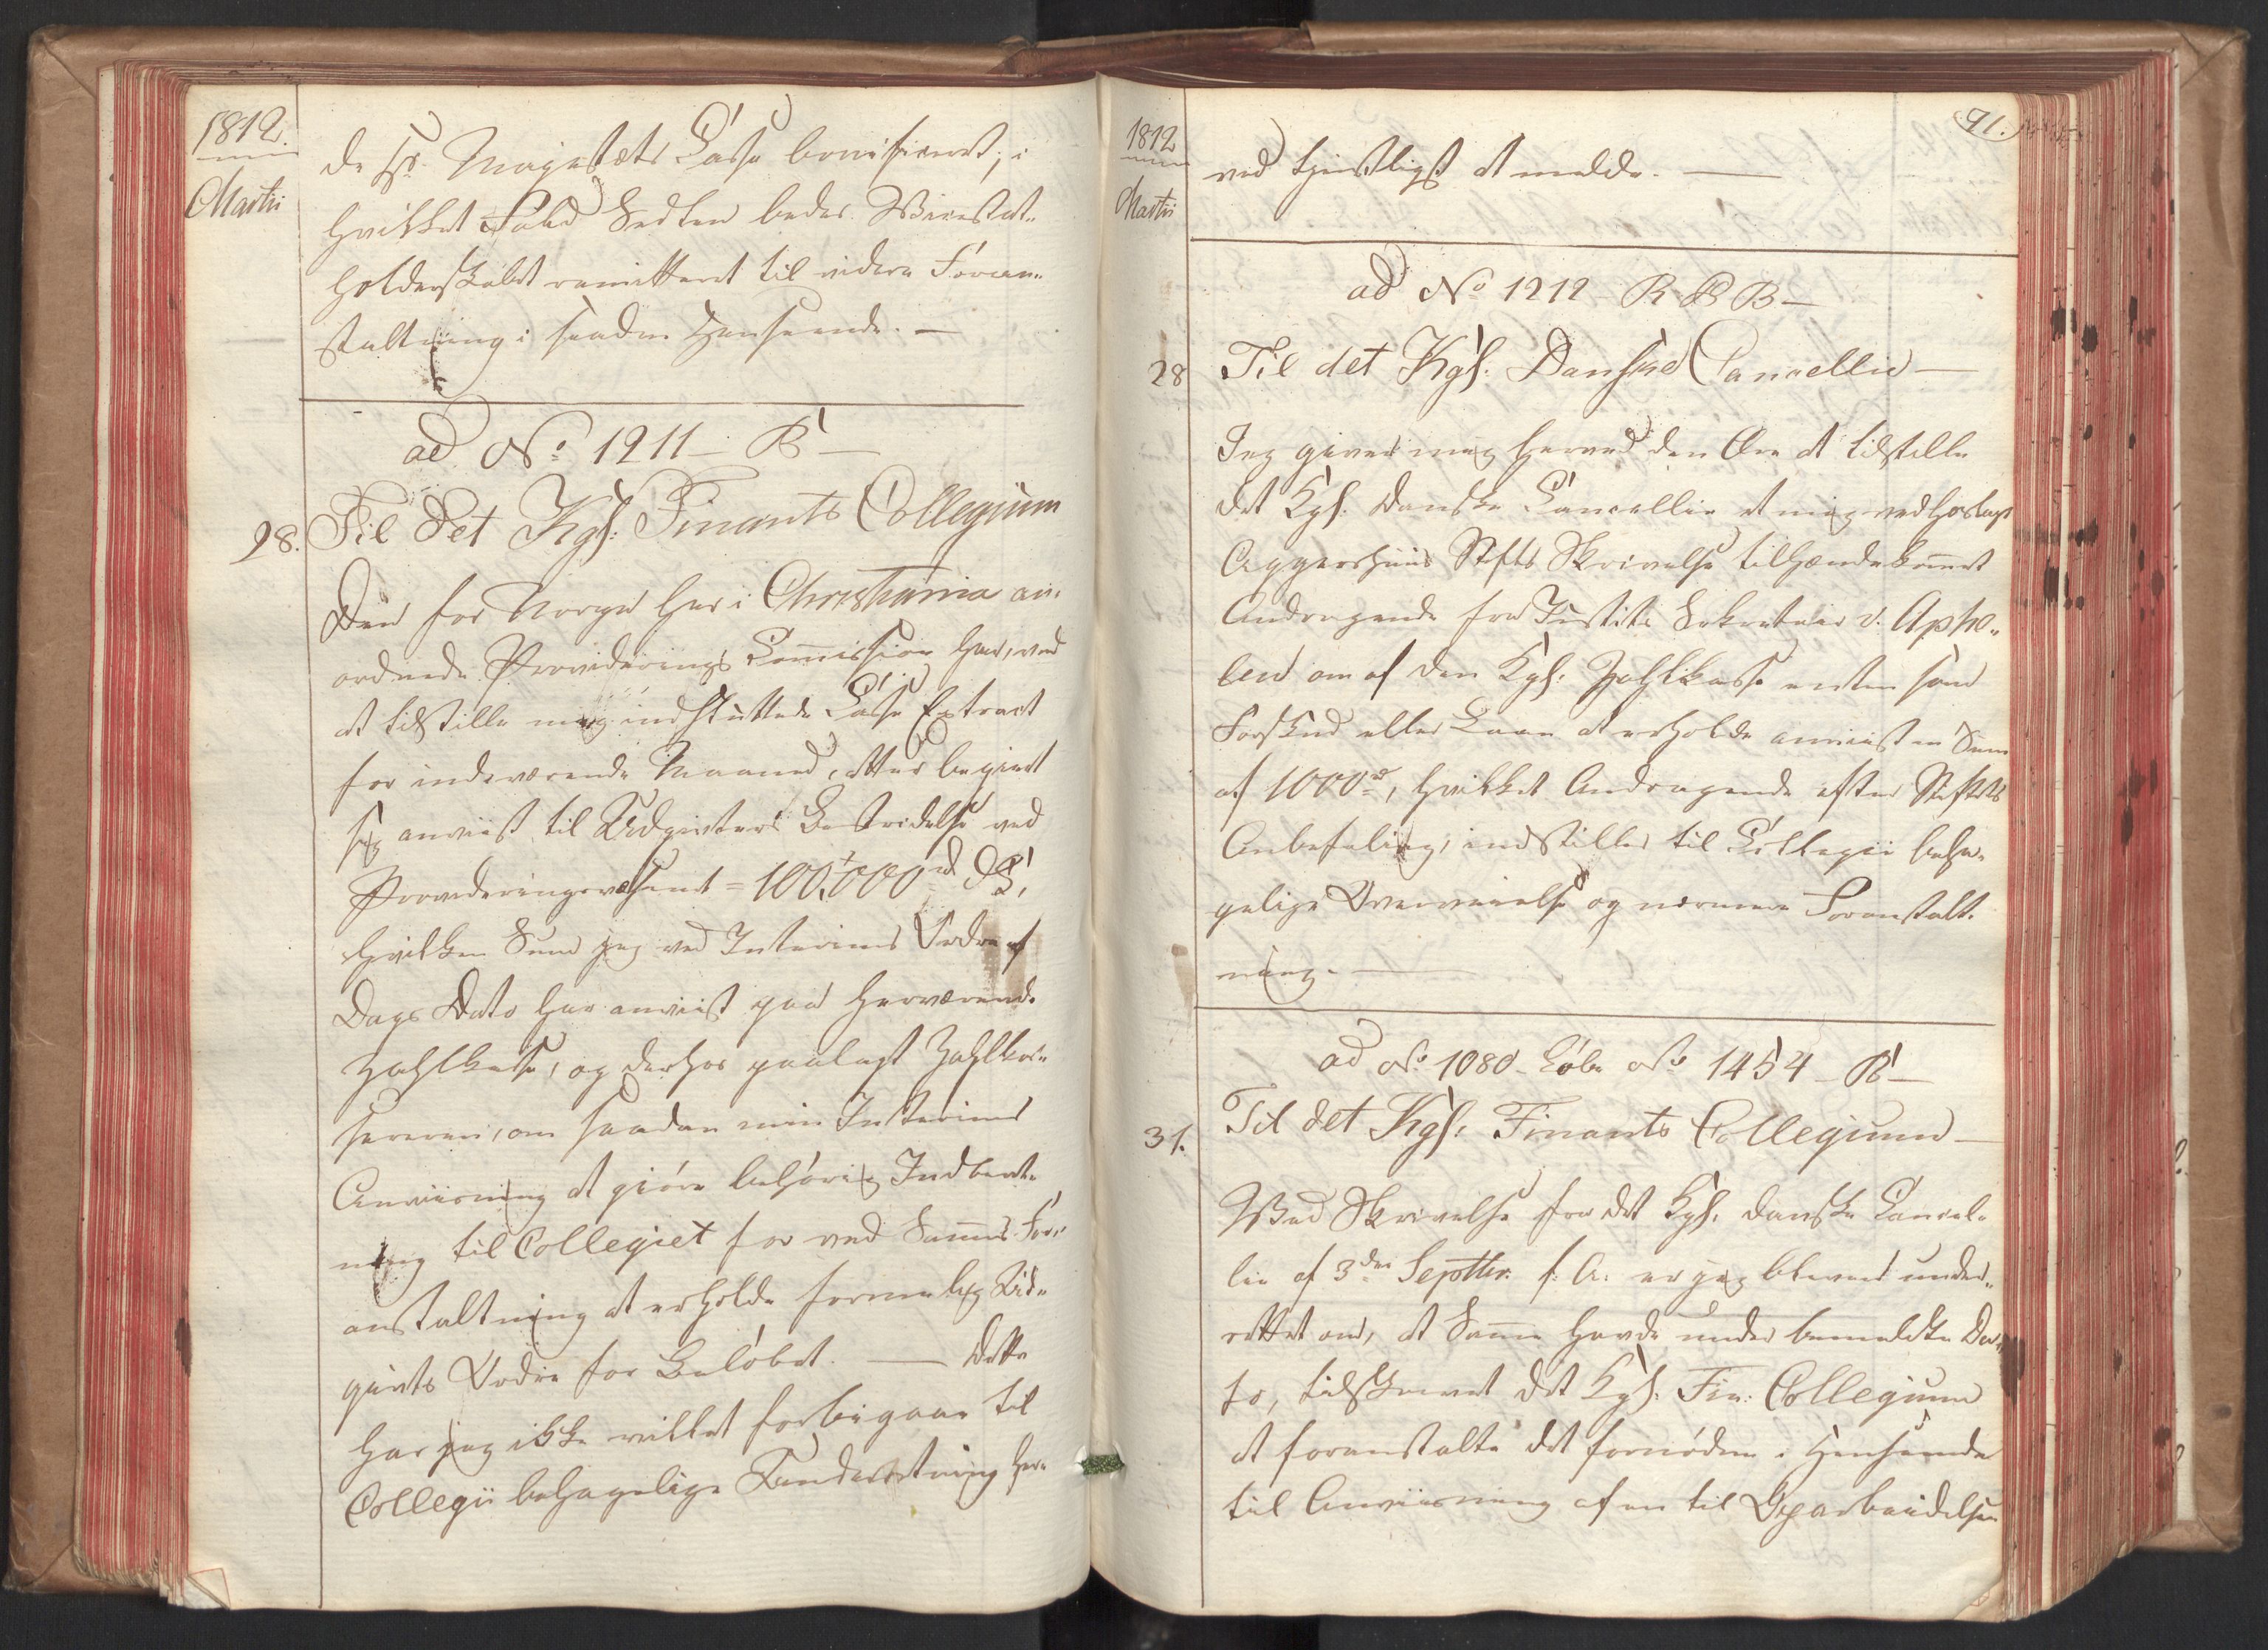 1812.
Martii
de Hs. Majestets Casse bonificeret, i
hvilket Fald Sedlen bedes Viicestat-
holderskabet remitteret til videre Foran-
staltning i saadan Henseende. —
ad No. 1211 – B –
28. Til det Kgl. Finants Collegium
Den for Norge her i Christiania an-
ordnede Provideringscommission har, ved
at tilstille mig indsluttede Casse Extract
for indeværende Maaned, atter begiert
sig anviist til Udgivters Bestridelse ved
Provideringsvæsenet = 100,000 rd DC,
hvilken Sum jeg ved Interims Ordre af
Dags Dato har anviist paa herværende
Zahlkasse, og derhos paalagt Zahlkas-
sereren, om saadan min Interims
Anviisning at giøre behørig Indberet-
ning til Collegiet for ved Sammes For-
anstaltning at erholde formelig Ud-
givts Ordre for Beløbet. — Dette
har jeg ikke villet forbigaae til
Collegii behagelige Underretning her-
1812
Martii
91.
ved tjenstligst at melde. —
ad No. 1212 – R & B –
28 Til det Kgl. Danske Cancellie —
Jeg giver mig herved den Ære at tilstille
det Kgl. Danske Cancellie et mig vedhoslagt
Aggershuus Stifts Skrivelse tilhændekommet
Andragende fra Justits Sekretair v. Aphe-
len om af den Kgl. Zahlkasse enten som
Forskud eller Laan at erholde anviist en Sum
af 1000 rd, hvilket Andragende efter Stiftets
Anbefaling, indstilles til Collegii beha-
gelige Overveielse og nærmere Foranstalt-
ning. —
ad No. 1080 – Løbe No. 1454 – B –
31. Til det Kgl. Finants Collegium —
Ved Skrivelse fra det Kgl. danske Cancel-
lie af 3die Septbr. f. A. er jeg bleven under-
rettet om, at Samme havde under bemeldte Da-
to, tilskrevet det Kgl. Fin: Collegium
at foranstalte det fornødne i Henseende
til Anviisning af en til Oparbeidelsen